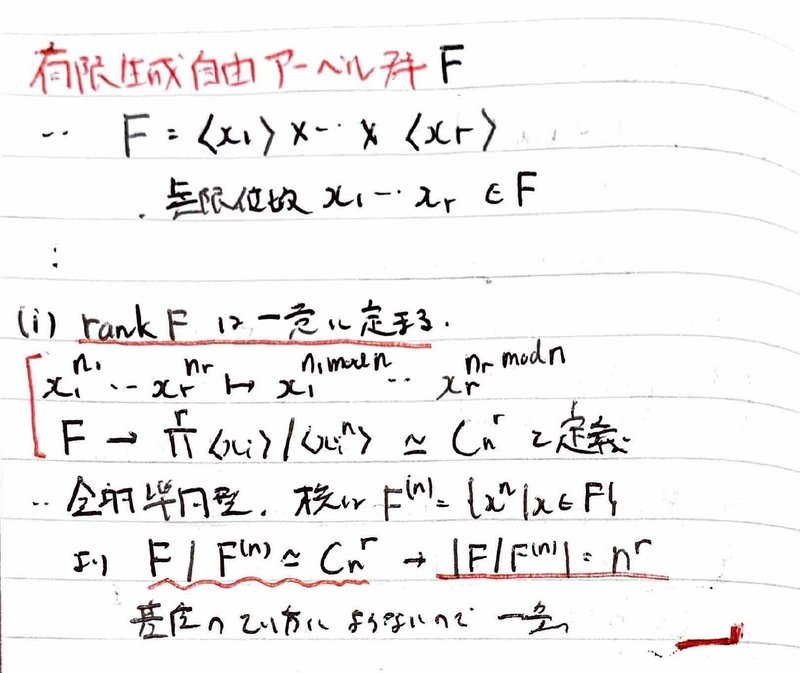 有限生成自由アーベル群 F
‥ F = ⟨x₁⟩ × ‥ × ⟨xᵣ⟩
無限位数 x₁ ‥ xᵣ ∈ F
:
(i) rank F は一意に定まる.
x₁^{n₁} ‥ xᵣ^{nᵣ} ↦ x₁^{n₁ mod n} ‥ xᵣ^{nᵣ mod n}
F → Π^r ⟨xᵢ⟩/⟨xᵢⁿ⟩ ≃ Cₙ^r と定義
‥ 全射準同型. 核は F^{(n)} = {xⁿ | x ∈ F}
より F / F^{(n)} ≃ Cₙ^r → |F/F^{(n)}| = n^r
基底のとり方によらないので 一意